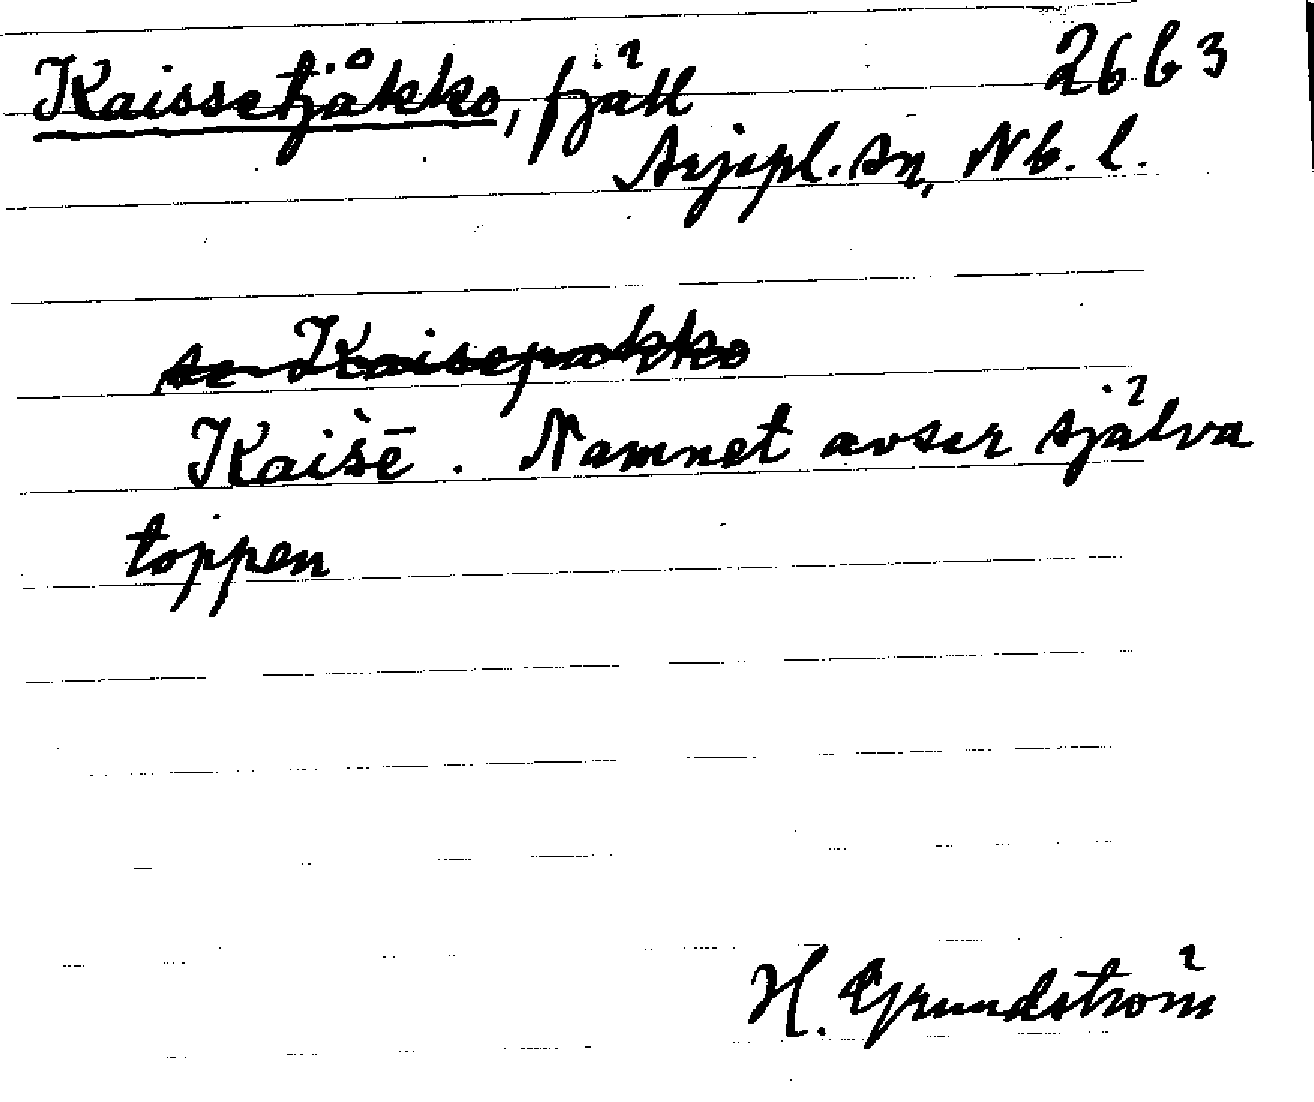 Kaissetjåkko, fjäll 26 b 3
Arjepl. sn, Nb. l.
se Kaisepakko
Kaišē. Namnet avser själva
toppen
H. Grundström